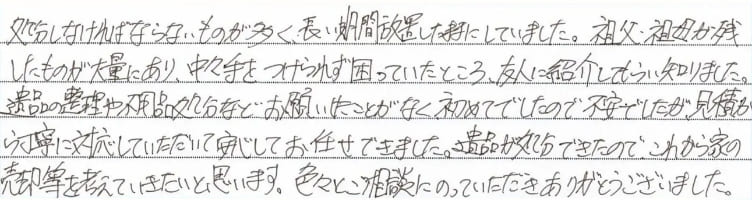 処分しなければならないものが多く、長い期間放置した持にしていました。祖父・祖母が残
したものが大量にあり、中々手をつけられず困っていたところ、友人に紹介してもらい知りました。
遺品の整理や不用品処分などお願いしたことがなく、初めてでしたので不安でしたが、見積か
ら丁寧に対応していただいて安心してお任せできました。遺品が処分できたので、これから家の
売却等を考えていきたいと思います。色々とご相談にのっていただきありがとうございました。